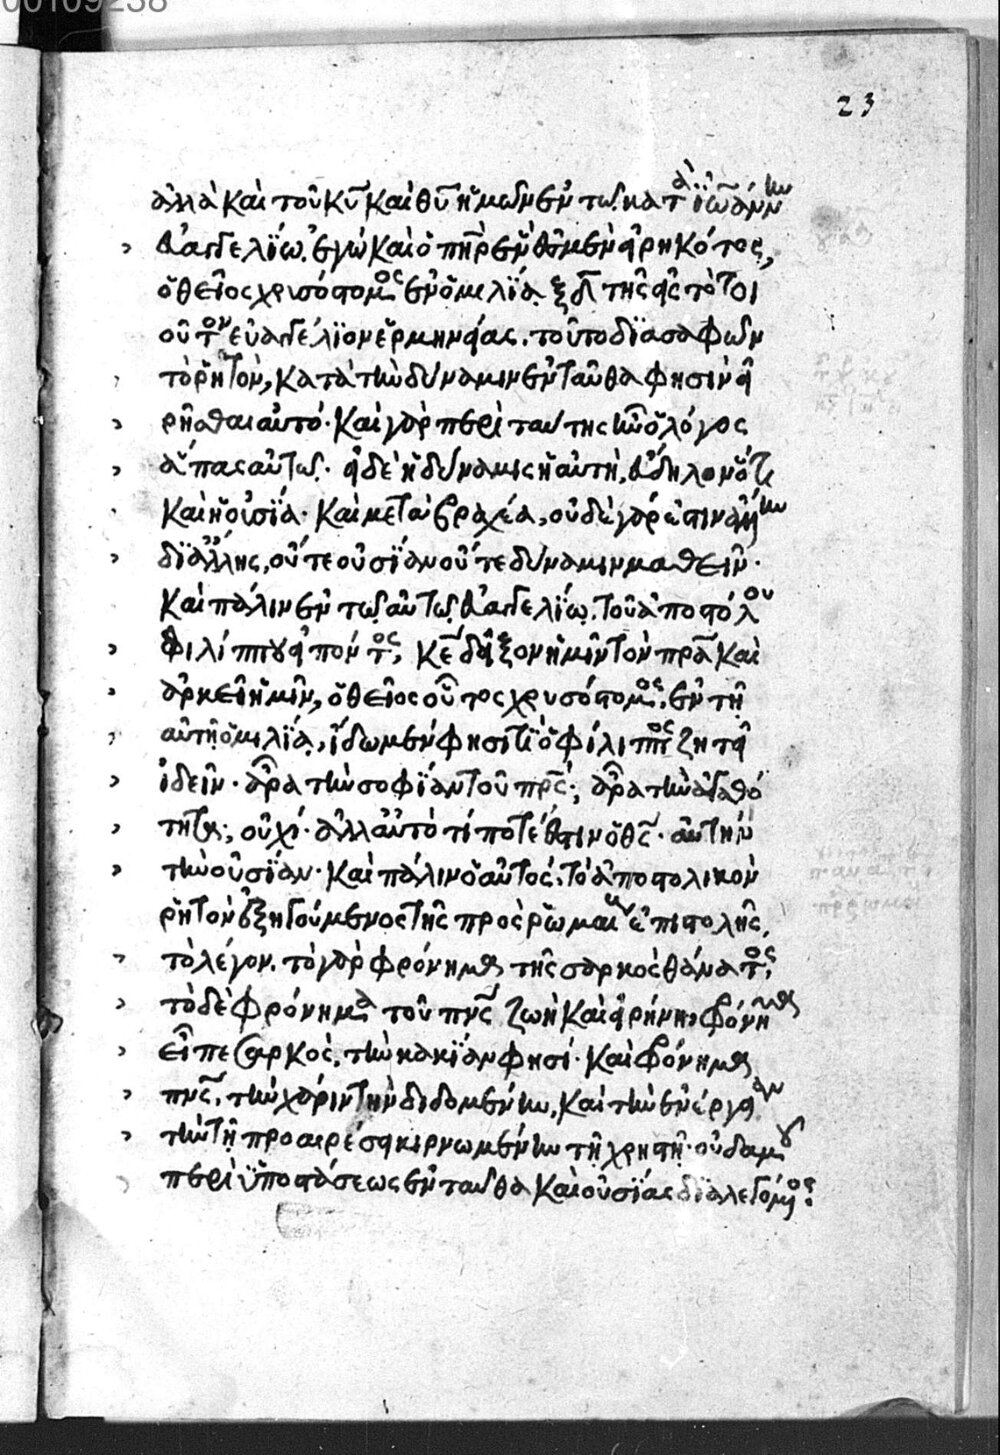 00109238
23
ἀλλὰ καὶ τοῦ κῡ καὶ θῡ ἡμῶν ἐν τῶ κατὰ ἰωάννην
εὐαγγελίω, ἐγὼ καὶ ὁ πη̄ρ ἕν ἐσμεν εἰρηκότος,
ὁ θεῖος χρισόστομος ἐν ὁμιλία ξδ τῆς εἰς τὸ τοι
οῦτον εὐαγγέλιον ἑρμηνείας. τοῦτο διασαφῶν
τὸ ῥητὸν, κατὰ τὴν δύναμιν ἐνταῦθα φησὶν εἰ
ρῆσθαι αὐτό. καὶ γὰρ περὶ ταύτης ἦν ὁ λόγος
ἅπας αὐτῶ. εἰ δὲ ἡ δύναμις ἡ αὐτὴ, εὔδηλον ὅτι
καὶ ἡ οὐσία. καὶ μετὰ βραχέα, οὐδὲ γάρ ἐστιν ἄλλην
δι ἄλλης, οὔτε οὐσίαν οὔτε δύναμιν μαθεῖν.
καὶ πάλιν ἐν τῶ αὐτῶ εὐαγγελίω, τοῦ ἀποστόλου
φιλίππου εἰπόντος, κε̄ δεῖξον ἡμῖν τὸν πρ̄α καὶ
ἀρκεῖ ἡμῖν, ὁ θεῖος οὗτος χρυσόστομος, ἐν τῆ
αὐτῆ ὁμιλία, ἴδωμεν φησὶ τί ὁ φίλιππος ζητεῖ
ἰδεῖν. ἆρα τὴν σοφίαν τοῦ πρ̄ς; ἆρα τὴν ἀγαθό
τητα; οὐχί. ἀλλ αὐτὸ τί ποτέ ἐστιν ὁ θς̄. αὐτὴν
τὴν οὐσίαν. καὶ πάλιν ὁ αὐτὸς, τὸ ἀποστολικὸν
ῥητὸν ἐξηγούμενος τῆς πρὸς ῥωμαίους ἐπιστολῆς,
τὸ λέγον. τὸ γὰρ φρόνημα τῆς σαρκὸς θάνατος,
τὸ δὲ φρόνημα τοῦ πνς̄ ζωὴ καὶ εἰρήνη, φρόνημα
εἶπε σαρκὸς, τὴν κακίαν φησί. καὶ φρόνημα
πνς̄, τὴν χάριν τὴν διδομένην, καὶ τὴν ἐνέργειαν
τὴν τῆ προαιρέσει κιρνωμένην τῆ χρηστῆ. οὐδαμοῦ
περὶ ὑποστάσεως ἐνταῦθα καὶ οὐσίας διαλεγόμενος: